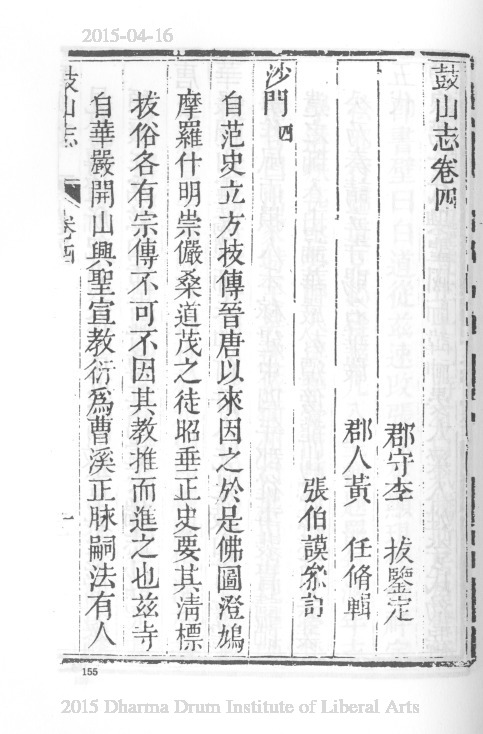 2015-04-16
鼓山志卷四
郡守李 拔鑒定
郡人黃 任脩輯
張伯謨叅訂
沙門 四
自范史立方技傳晉唐以來因之於是佛圖澄鳩
摩羅什明崇儼桑道茂之徒昭垂正史要其清標
拔俗各有宗傳不可不因其教推而進之也茲寺
自華嚴開山興聖宣教衍爲曹溪正脉嗣法有人
鼓山志 卷四 一
155
2015 Dharma Drum Institute of Liberal Arts